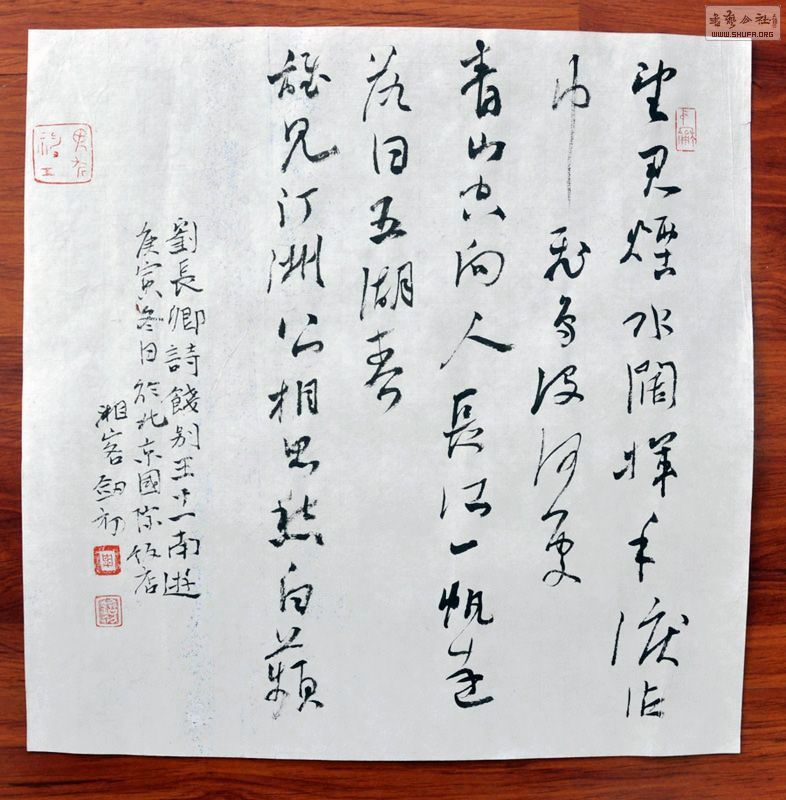 書藝公社
WWW.SHUFA.ORG
望君煙水闊揮手淚沾
巾飛鳥沒何處
青山空向人長江一帆遠
落日五湖春
誰見汀洲上相思愁白蘋
劉長卿詩餞别王十一南遊
庚寅冬日於北京國際飯店
湘客劍初